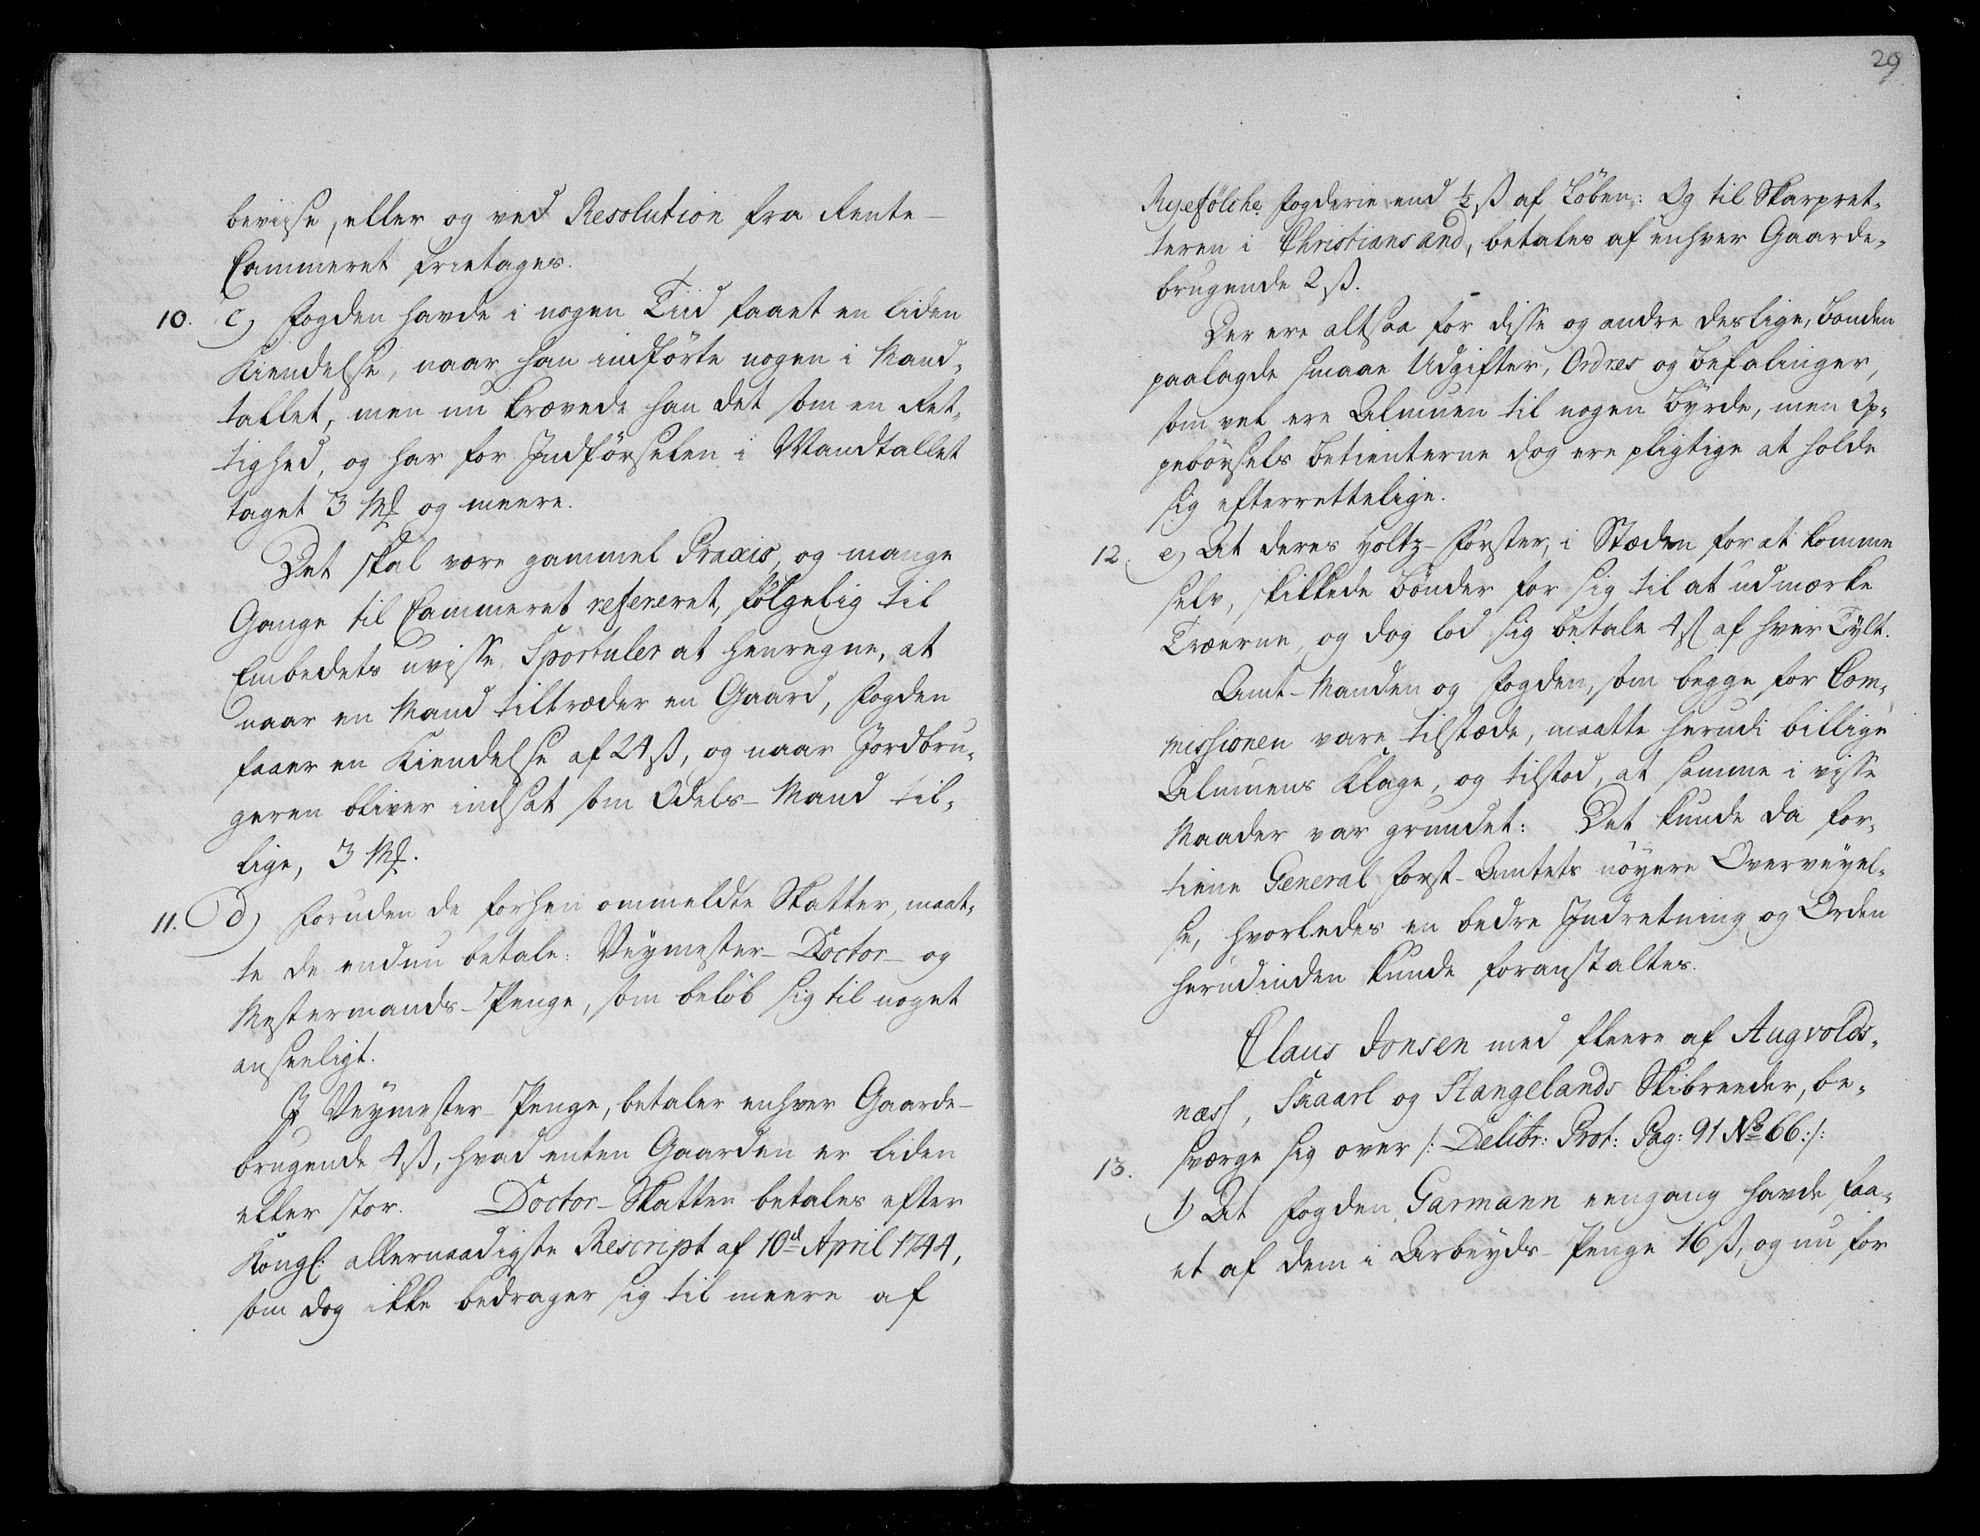 beviise, eller og ved Resolution fra Rente-
Cammeret frietages.
10. c) Fogden havde i nogen Tiid faaet en liden
Kiendelse, naar han indførte nogen i Mand-
tallet, men nu krævede han det som en Ret-
tighed, og har for Indførselen i Mandtallet
taget 3 Mk og meere.
Det skal være gammel Praxis, og mange
Gange til Cammeret refereret, følgelig til
Embedets uvisse Sportuler at henregne, at
naar en Mand tiltræder en Gaard, Fogden
faaer en Kiendelse af 24 ß, og naar Jordbru-
geren bliver indsat som Odels-Mand til-
lige, 3 Mk.
11. d) Foruden de forhen ommeldte Skatter, maat-
te de endnu betale: Veymester- Doctor- og
Mestermands-Penge, som beløb sig til noget
anseeligt.
I Veymester-Penge, betaler enhver Gaarde-
brugende 4 ß, hvad enten Gaarden er liden
eller stor. Doctor-Skatten betales efter
Kongl: allernaadigste Rescript af 10d April 1744,
som dog ikke bedrager sig til meere af
29
Ryefølche Fogderie end ½ ß af Løben: Og til Skarpret-
teren i Christiansand, betales af enhver Gaarde-
brugende 2 ß.
Der ere altsaa for disse og andre deslige, Bonden
paalagde smaae Udgifter, Ordres og Befalinger,
som vel ere Almuen til nogen Byrde, men Op-
pebørsels Betienterne dog ere pligtige at holde
sig efterrettelige.
12. e) At deres Holtz-Førster, i Stæden for at komme
selv, skikkede Bønder for sig til at udmærke
Træerne, og dog lod sig betale 4 ß af hver Tylt.
Amt-Manden og Fogden, som begge for Com-
missionen vare tilstæde, maatte herudi billige
Almuens Klage, og tilstod, at samme i visse
Maader var grundet: Det kunde da for-
tiene General Forst-Amtets nøyere Overveyel-
se, hvorledes en bedre Indretning og Orden
herudinden kunde foranstaltes.
Claus Jonsen med fleere af Augvolds-
næss, Skaarl og Stangelands Skibreeder, be-
sværge sig over /: Delibr: Prot: Pag: 91 No 66:/:
13. 1) At Fogden Garmann eengang havde faa-
et af dem i Arbeyds-Penge 16 ß, og nu for